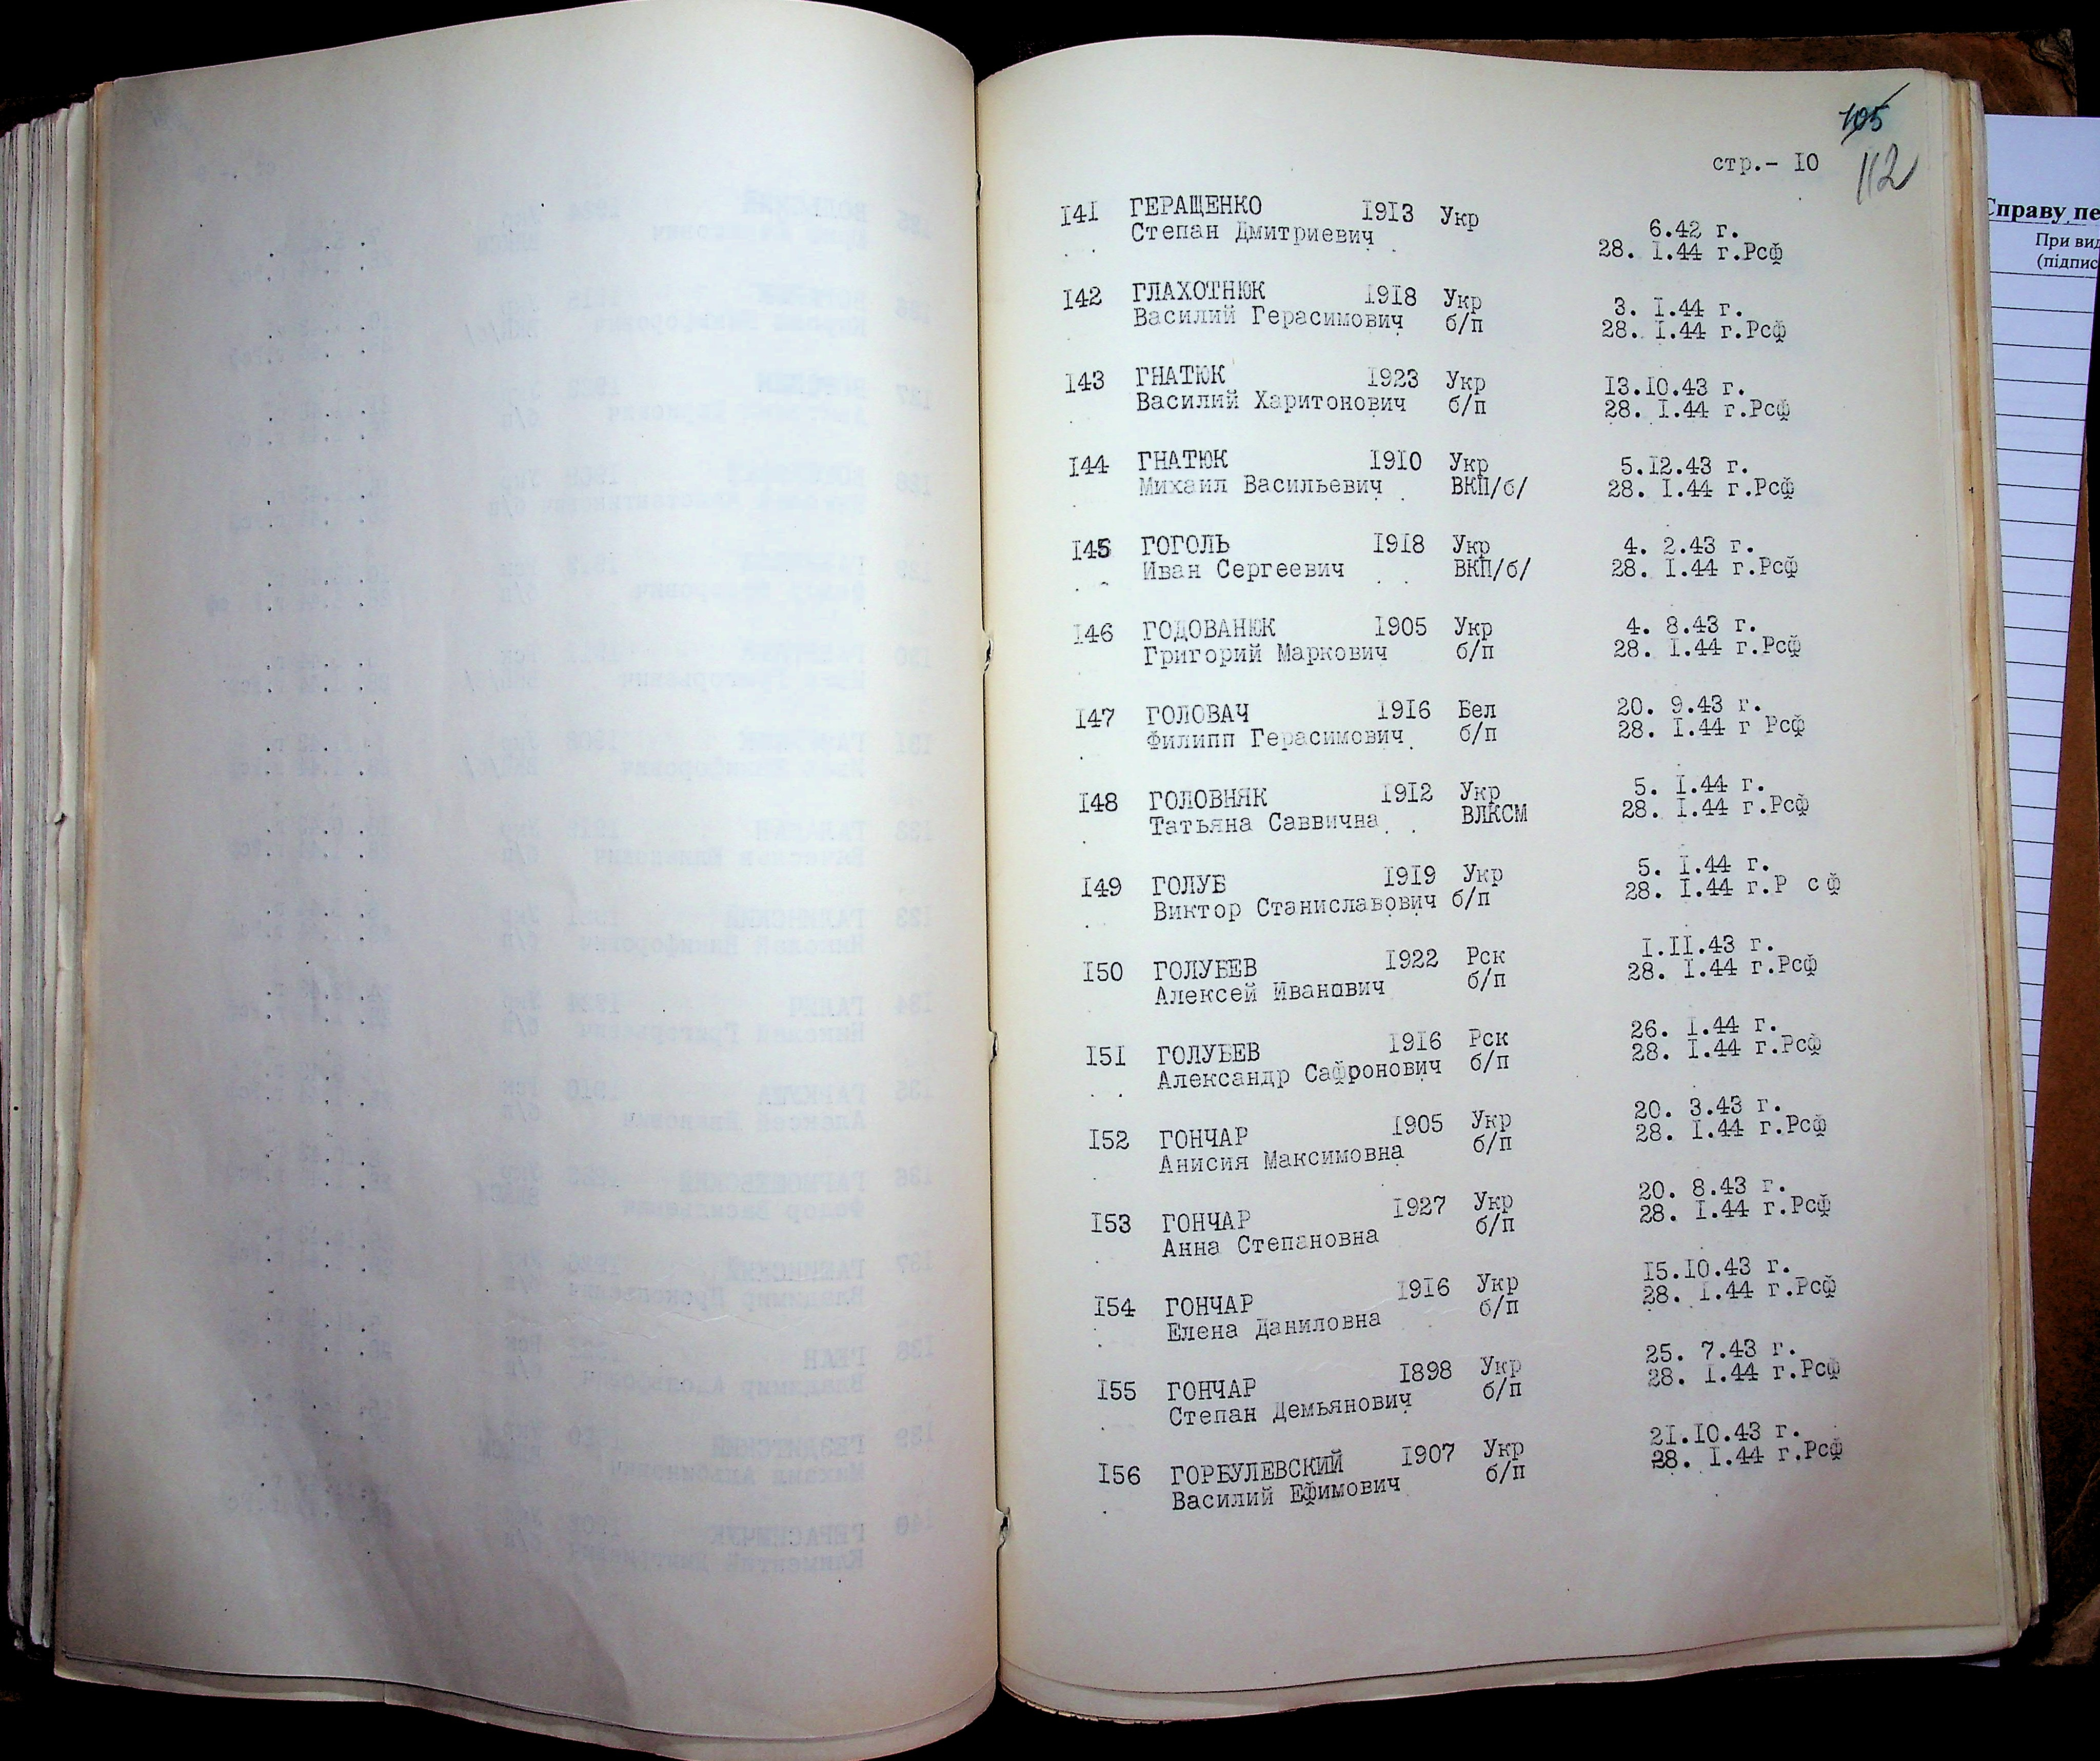 105
стр.- I0
112
Справу пе
При вид
(підпис
I4I ГЕРАЩЕНКО I9I3 Укр 6.42 г.
Степан Дмитриевич 28. I.44 г.Рсф
I42 ГЛАХОТНЮК I9I8 Укр 3. I.44 г.
Василий Герасимович б/п 28. I.44 г.Рсф
I43 ГНАТЮК I923 Укр I3.I0.43 г.
Василий Харитонович б/п 28. I.44 г.Рсф
I44 ГНАТЮК I9I0 Укр 5.I2.43 г.
Михаил Васильевич ВКП/б/ 28. I.44 г.Рсф
I45 ГОГОЛЬ I9I8 Укр 4. 2.43 г.
Иван Сергеевич ВКП/б/ 28. I.44 г.Рсф
I46 ГОДОВАНЮК I905 Укр 4. 8.43 г.
Григорий Маркович б/п 28. I.44 г.Рсф
I47 ГОЛОВАЧ I9I6 Бел 20. 9.43 г.
Филипп Герасимович б/п 28. I.44 г Рсф
I48 ГОЛОВНЯК I9I2 Укр 5. I.44 г.
Татьяна Саввична ВЛКСМ 28. I.44 г.Рсф
I49 ГОЛУБ I9I9 Укр 5. I.44 г.
Виктор Станиславович б/п 28. I.44 г.Р с ф
I50 ГОЛУБЕВ I922 Рск I.II.43 г.
Алексей Иванович б/п 28. I.44 г.Рсф
I5I ГОЛУБЕВ I9I6 Рск 26. I.44 г.
Александр Сафронович б/п 28. I.44 г.Рсф
I52 ГОНЧАР I905 Укр 20. 3.43 г.
Анисия Максимовна б/п 28. I.44 г.Рсф
I53 ГОНЧАР I927 Укр 20. 8.43 г.
Анна Степановна б/п 28. I.44 г.Рсф
I54 ГОНЧАР I9I6 Укр I5.I0.43 г.
Елена Даниловна б/п 28. I.44 г.Рсф
I55 ГОНЧАР I898 Укр 25. 7.43 г.
Степан Демьянович б/п 28. I.44 г.Рсф
I56 ГОРБУЛЕВСКИЙ I907 Укр 2I.I0.43 г.
Василий Ефимович б/п 28. I.44 г.Рсф